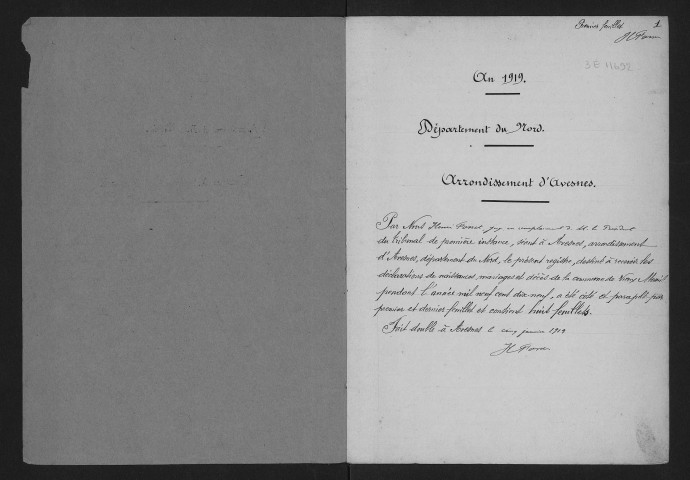 Premier feuillet 1
An 1919.
Département du Nord.
Arrondissement d'Avesnes.
Par Nous Henri juge en remplacement de M. le Président
du tribunal de première instance, séant à Avesnes, arrondissement
d'Avesnes, département du Nord, le présent registre, destiné à recevoir les
déclarations de naissances, mariages et décès de la commune de Vieux Mesnil
pendant l'année mil neuf cent dix-neuf, a été coté et paraphé par
premier et dernier feuillet et contient huit feuillets.
Fait double à Avesnes le cinq janvier 1919